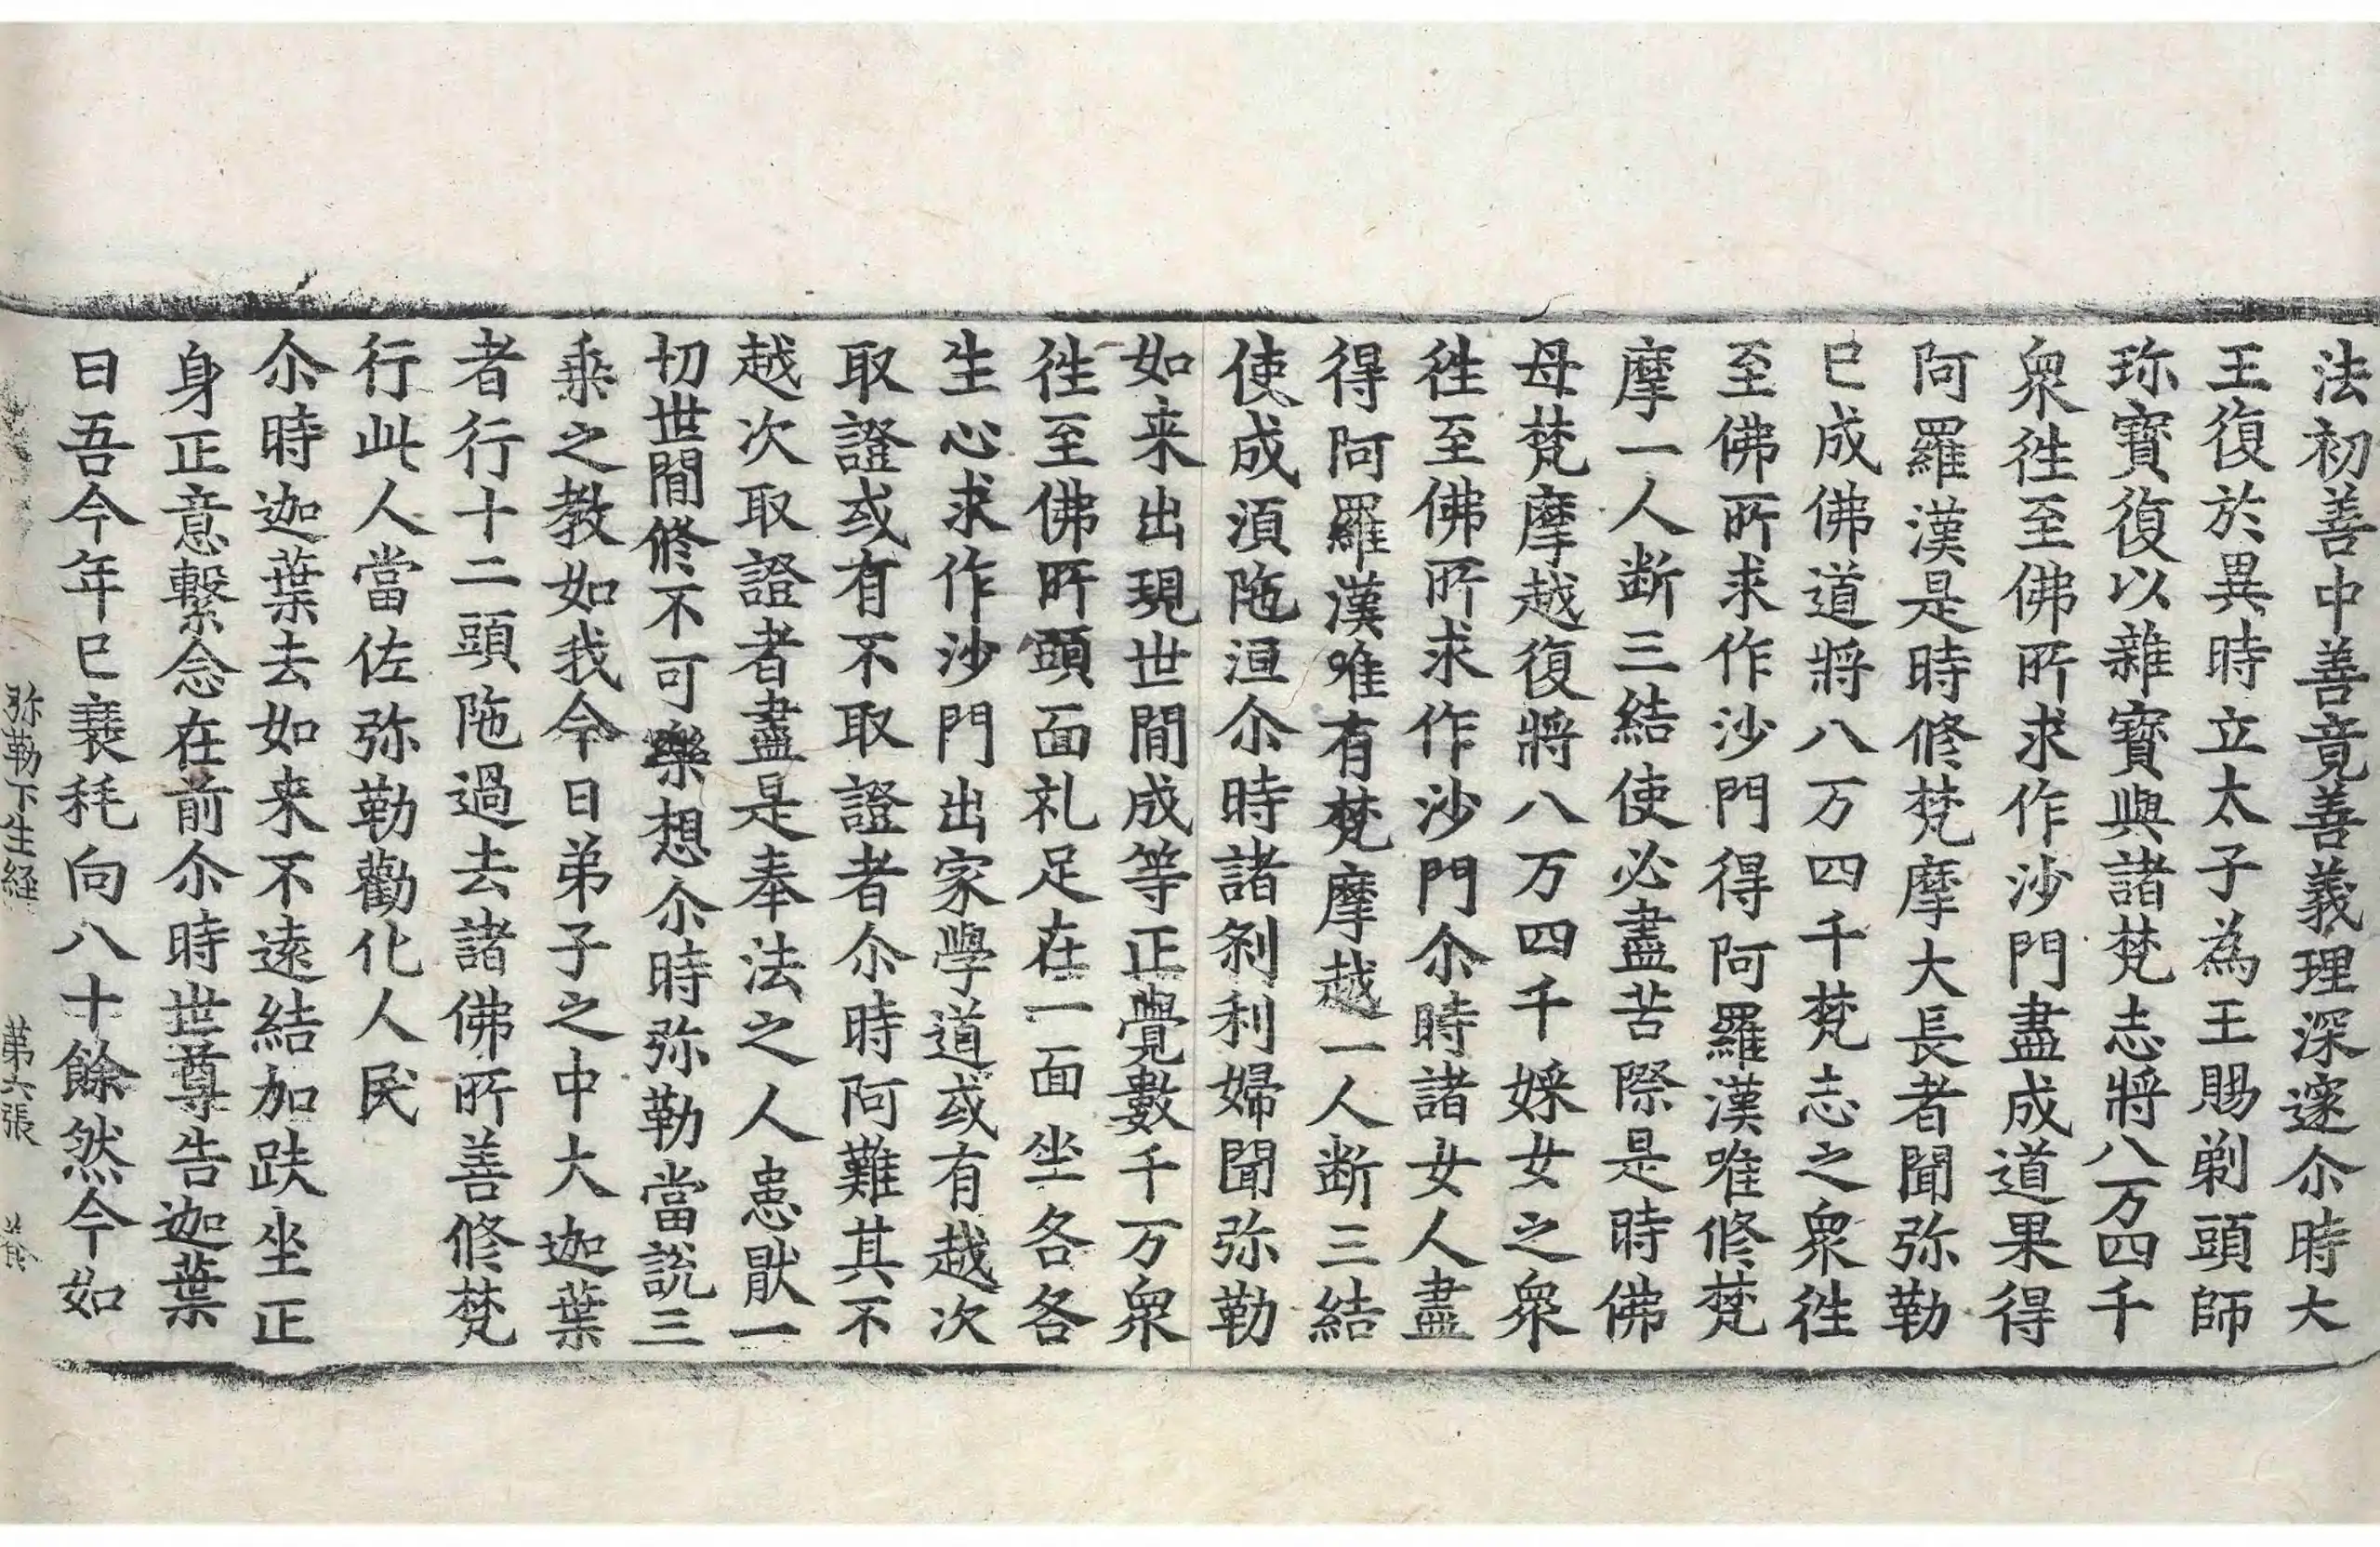 法初善中善竟善義理深邃尒時大
王復於異時立太子為王賜剃頭師
珎寶復以雜寶與諸梵志將八万四千
衆徃至佛所求作沙門盡成道果得
阿羅漢是時修梵摩大長者聞弥勒
已成佛道將八万四千梵志之衆徃
至佛所求作沙門得阿羅漢唯修梵
摩一人断三結使必盡苦際是時佛
母梵摩越復將八万四千婇女之衆
徃至佛所求作沙門尒時諸女人盡
得阿羅漢唯有梵摩越一人断三結
使成湏陁洹尒時諸剎利婦聞弥勒
如来出現世間成等正覺數千万衆
徃至佛所頭面礼足在一面坐各各
生心求作沙門出家學道或有越次
取證或有不取證者尒時阿難其不
越次取證者盡是奉法之人患猒一
切世間修不可樂想尒時弥勒當說三
乗之教如我今日弟子之中大迦葉
者行十二頭陁過去諸佛所善修梵
行此人當佐弥勒勸化人民
尒時迦葉去如来不遠結加趺坐正
身正意繫念在前尒時世尊告迦葉
曰吾今年已衰耗向八十餘然今如
弥勒下生経 苐六張